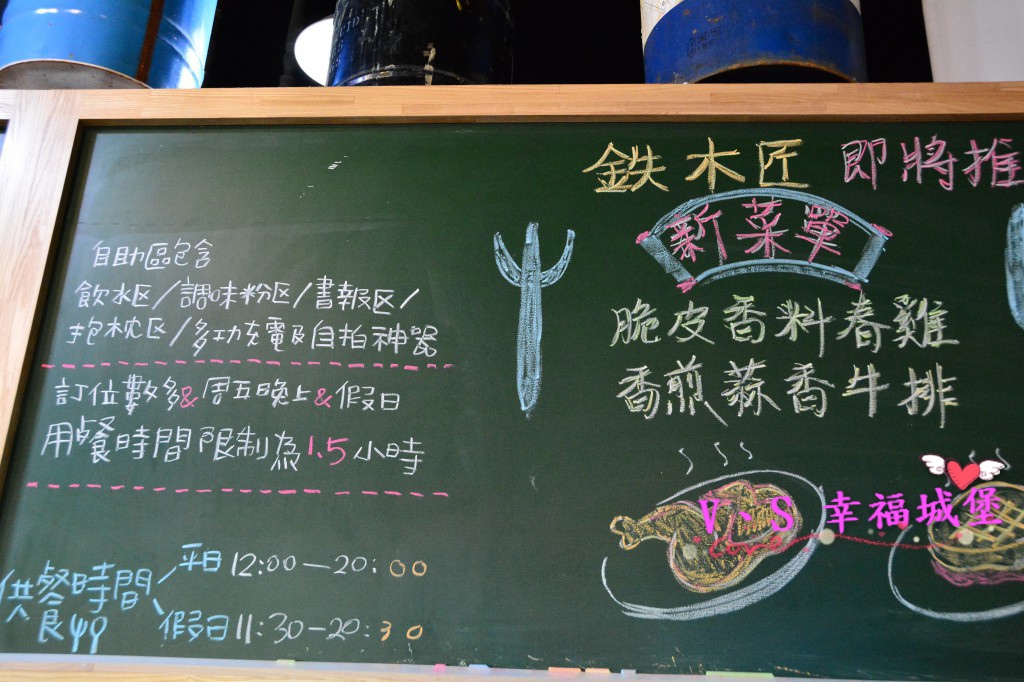 鉄木匠 即將推
新菜單
脆皮香料春雞
香煎蒜香牛排
自助區包含
飲水区/調味粉区/書報区/
抱枕区/多功充電及自拍神器
訂位數多&周五晚上&假日
用餐時間限制為1.5小時
供餐時間
平日12:00-20:00
假日11:30-20:30
V、S 幸福城堡